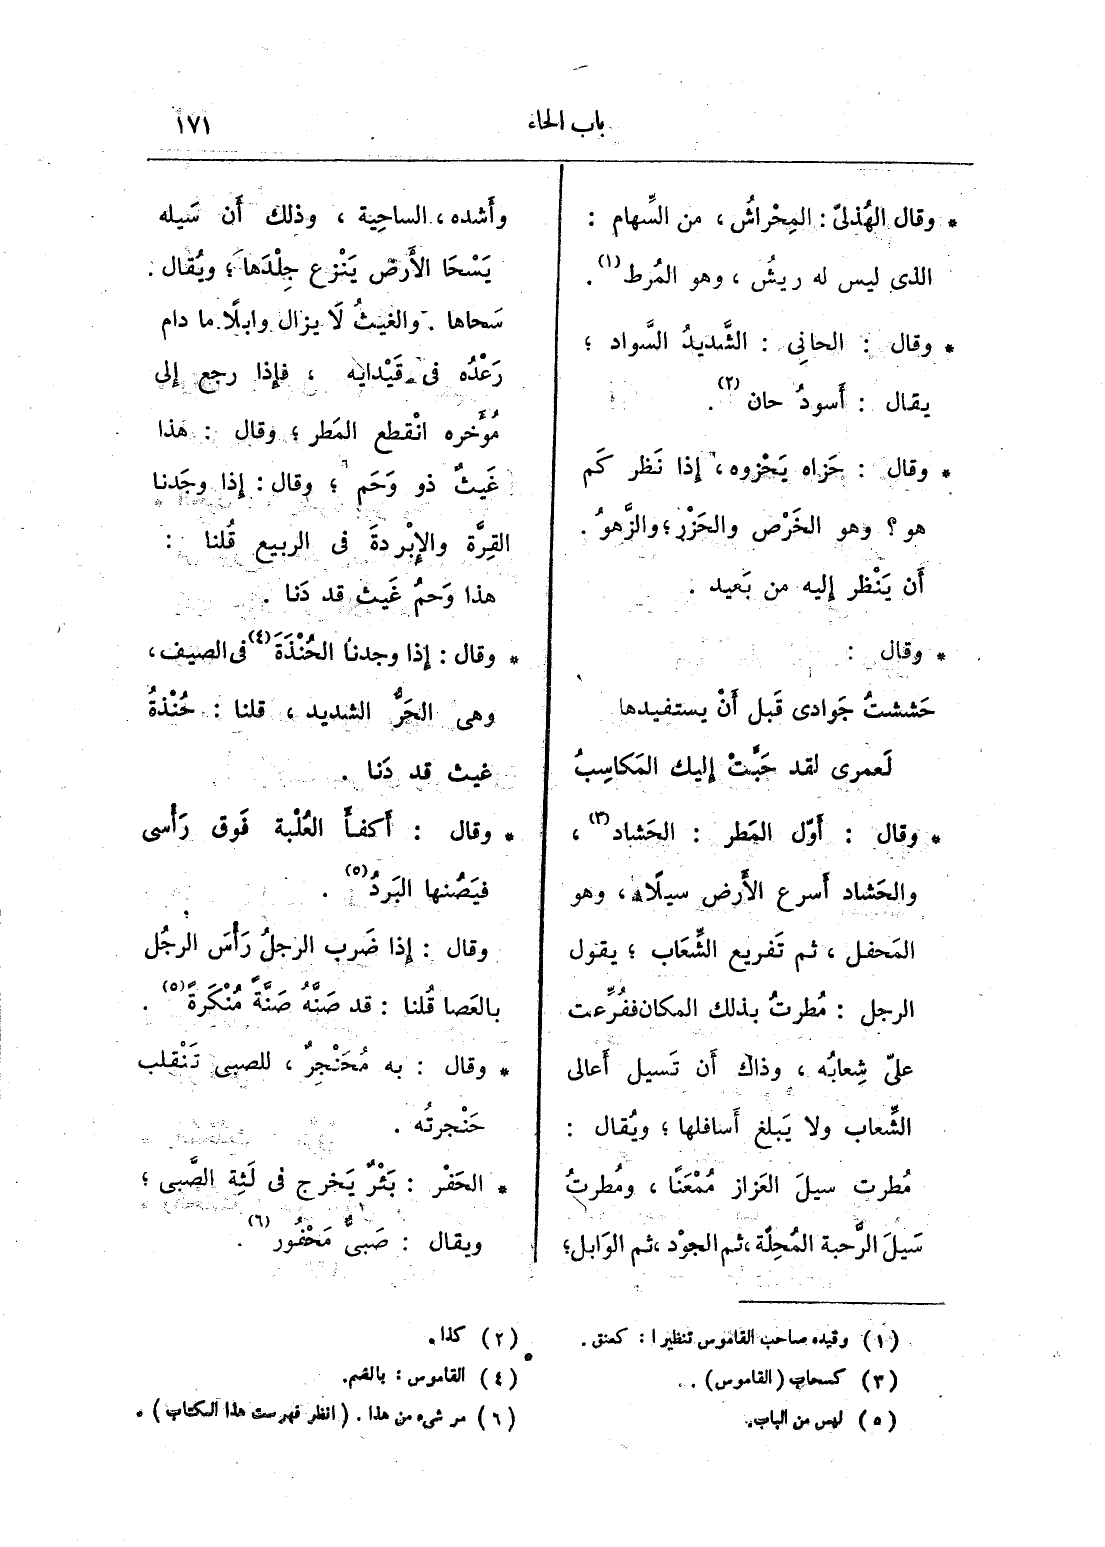 باب الحاء
١٧١
* وقال الهُذلىّ : المِحْراشُ ، من السِّهام :
الذى ليس له ريشُ ، وهو المُرط (١) .
* وقال : الحانِى : الشَّديدُ السَّواد ؛
يقال : أَسودُ حان (٢) .
* وقال : حَزاه يَحْزوه ، إذا نَظر كَم
هو ؟ وهو الخَرْص والحَزْر ؛ والزَّهوُ .
أَن يَنْظر إليه من بَعيد .
* وقال :
حَششتُ جَوادى قَبل أَنْ يستفيدها
لَعمرى لقد حَبَّتْ إليك المَكاسِبُ
* وقال : أَوّل المَطر : الحَشاد (٣) ،
والحَشاد أَسرع الأَرض سيلًا ، وهو
المَحفل ، ثم تَفريع الشِّعَاب ؛ يقول
الرجل : مُطرتُ بذلك المكان ففُرِّعت
علىّ شِعابُه ، وذاك أَن تَسيل أَعالى
الشِّعاب ولا يَبلغ أَسافلها ؛ ويُقال :
مُطرت سيلَ العَزاز مُمْعَنًا ، ومُطرتُ
سَيلَ الرَّحبة المُحِلّة ، ثم الجوْد ، ثم الوَابل ؛
وأَشده ، الساحِية ، وذلك أَن سَيله
يَسْحَا الأَرضَ يَنْزع جِلْدَها ؛ ويُقال .
سَحاها . والغيثُ لَا يزال وابلًا ما دام
رَعْدُه فى قَيْدابِه ، فإِذا رجع إلى
مُؤَخره انْقطع المَطر ؛ وقال : هذا
غَيثٌ ذو وَحَم ؛ وقال : إذا وجَدنا
القِرَّة والإِبْردةَ فى الربيع قُلنا :
هذا وَحمُ غَيث قد دَنا .
* وقال : إذا وجدنا الحُنْذَةَ (٤) فى الصيف ،
وهى الحَرُّ الشديد ، قلنا : حُنْذةُ
غيث قد دَنا .
* وقال : أَكفأَ العُلْبة فَوق رَأْسى
فيَصُنها البَردُ (٥) .
وقال : إذا ضَرب الرجلُ رَأْسَ الرجُل
بالعَصا قُلنا : قد صَنَّهُ صَنَّةً مُنْكَرةً (٥) .
* وقال : به مُحَنْجِرٌ ، للصبى تَنْقلب
حَنْجرتُه .
* الحَفْر : بَثْرٌ يَخرج فى لَثِة الصَّبى ؛
ويقال : صَبىٌّ مَحْفُور (٦) .
(١) وقيده صاحب القاموس تنظيرا : كعنق .
(٢) كذا .
(٣) كسحاب (القاموس) .
(٤) القاموس : بالضم .
(٥) ليس من الباب .
(٦) مر شىء من هذا . (انظر فهرست هذا الكتاب) .